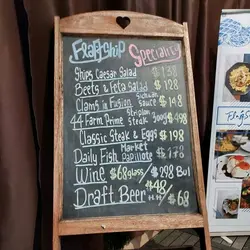 Flagship Specials
Ships Caesar Salad $138
Beets & Feta Salad $128
Clams in Fusion Sichuan Sauce $148
44 Farm Prime Striploin Steak 300g $498
Classic Steak & Eggs $198
Daily Fish Market Papillote $178
Wine $68 glass/ $298 Bol
Draft Beer $48/ $68